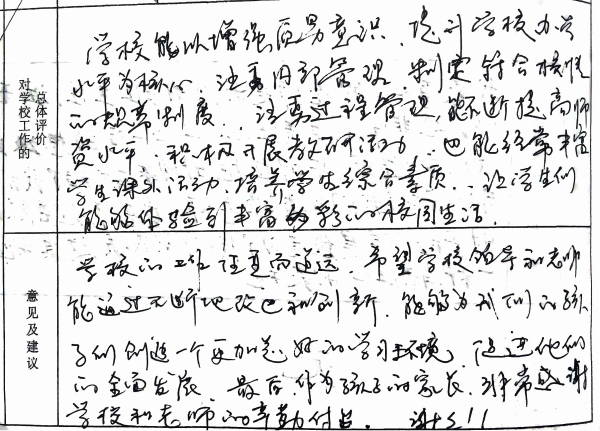 对学校工作的
总体评价
学校能以增强质量意识、提升学校办学
水平为核心,注重内部管理,制定符合校情
的规章制度,注重过程管理,能不断提高师
资水平,积极开展教研活动,也能经常丰富
学生课外活动,培养学生综合素质,让学生们
能够体验到丰富多彩的校园生活。
意见及建议
学校的工作任重而道远,希望学校领导和老师
能通过不断地改进和创新,能够为我们的孩
子们创造一个更加美好的学习环境,促进他们
的全面发展。最后,作为孩子的家长,非常感谢
学校和老师的辛勤付出。谢谢!!